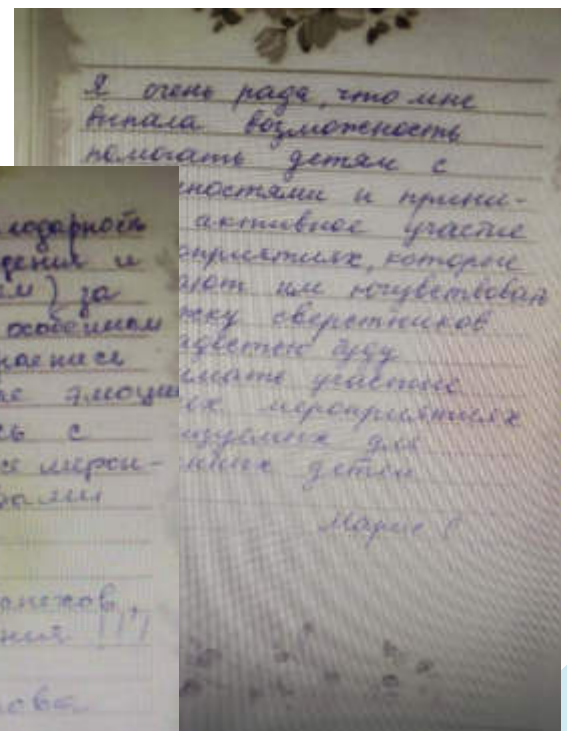 Я очень рада, что мне
выпала возможность
помогать детям с
ностями и прини-
активное участие
оприятиях, которые
ают им почувствовать
жку сверстников
буду
имать участие
ых мероприятиях
изуемых для
нных детей
Мария
лодарность
дения и
ем) за
особенном
эмоции
сь с
се меропи-
вами
ения !!!
ова